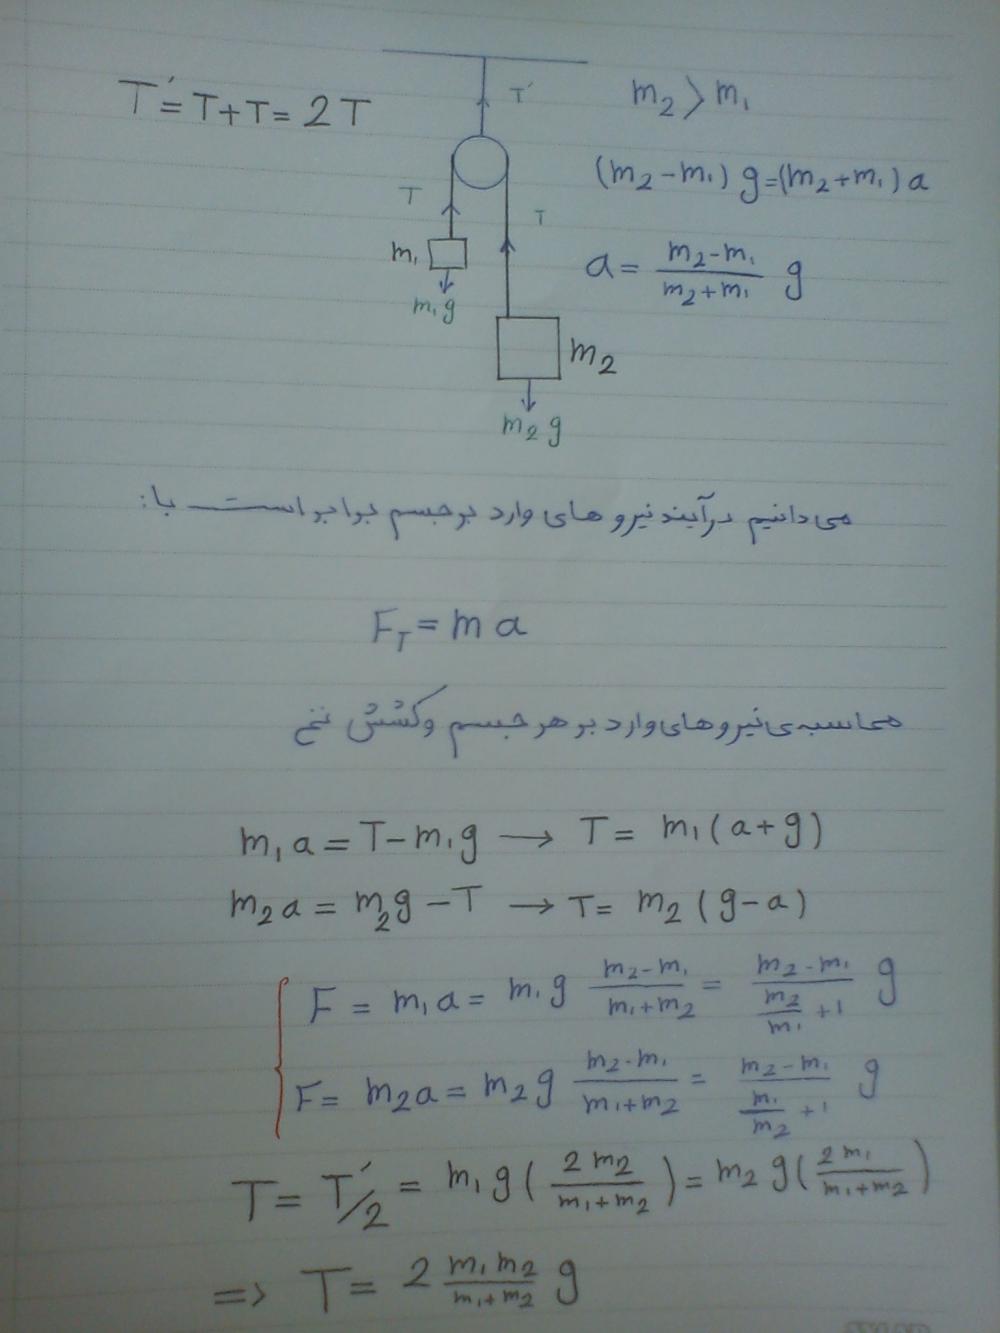 T′ = T + T = 2T
T′
m₂ > m₁
(m₂ - m₁) g = (m₂ + m₁) a
T
T
m₁
a = (m₂ - m₁)/(m₂ + m₁) g
m₁g
m₂
m₂g
می‌دانیم برآیند نیروهای وارد بر جسم برابر است با:
F_T = m a
محاسبه‌ی نیروهای وارد بر هر جسم و کشش نخ
m₁a = T - m₁g → T = m₁(a + g)
m₂a = m₂g - T → T = m₂(g - a)
F = m₁a = m₁g (m₂ - m₁)/(m₁ + m₂) = (m₂ - m₁)/(m₂/m₁ + 1) g
F = m₂a = m₂g (m₂ - m₁)/(m₁ + m₂) = (m₂ - m₁)/(m₁/m₂ + 1) g
T = T′/2 = m₁g(2m₂/(m₁ + m₂)) = m₂g(2m₁/(m₁ + m₂))
⇒ T = 2 (m₁m₂)/(m₁ + m₂) g